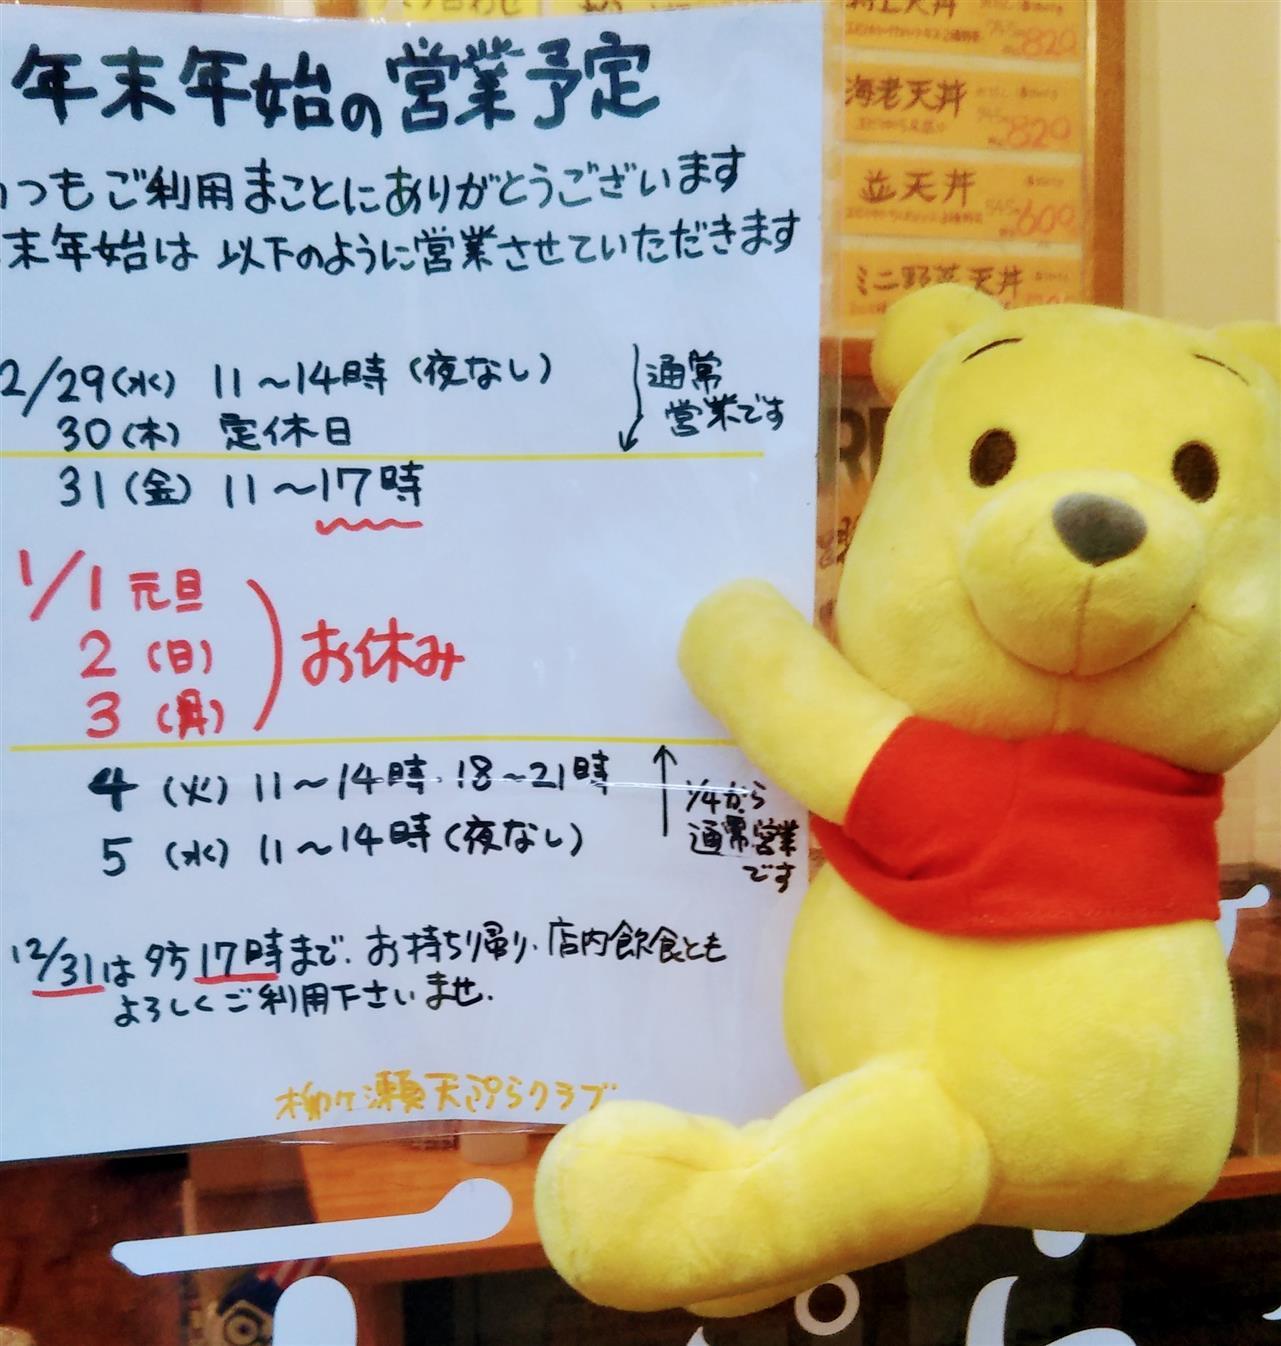 年末年始の営業予定
いつもご利用まことにありがとうございます
末年始は 以下のように営業させていただきます
2/29(水) 11〜14時(夜なし)
30(木) 定休日
通常
営業です
31(金) 11〜17時
1/1 元旦
2 (日)
3 (月)
お休み
4 (火) 11〜14時・18〜21時
5 (水) 11〜14時(夜なし)
1/4から
通常営業
です
12/31は夕方17時まで、お持ち帰り、店内飲食とも
よろしくご利用下さいませ.
柳ケ瀬天ぷらクラブ
特上天丼
820
海老天丼
820
並天丼
545
600
ミニ野菜天丼